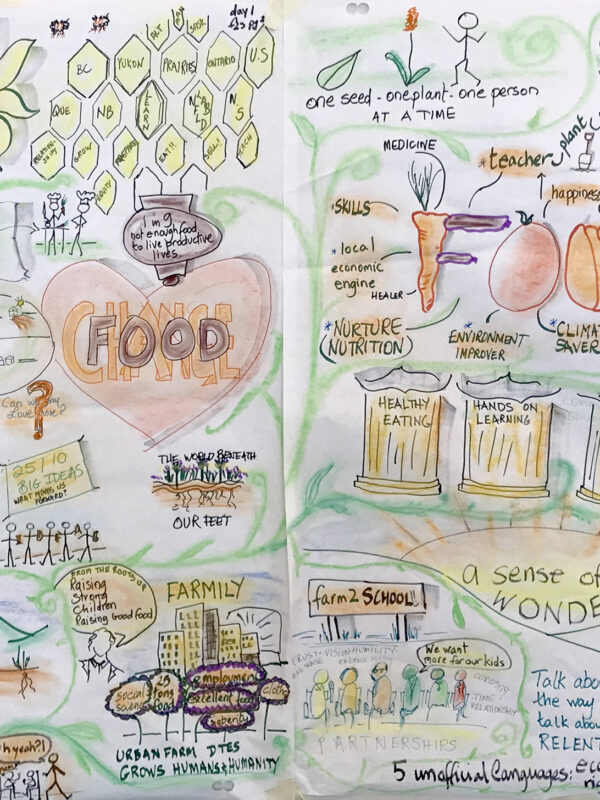 day 1
BC
YUKON
PRAIRIES
ONTARIO
U.S
QUE
NB
LEARN
NFLD
LAB
N
S
GROW
EATH
EQUITY
1 in 9
not enough food
to live productive
lives.
CHANGE
FOOD
Can we say
Love more?
25/10
BIG IDEAS
WHAT MOVES US
FORWARD?
THE WORLD BENEATH
OUR FEET
FROM THE ROOTS UP
Raising
Strong
Children
Raising Good food
FARMILY
social
science
25
tons
food
employment
excellent food
sobriety
cloth
URBAN FARM DTES
GROWS HUMANS & HUMANITY
h yeah?!
one seed - one plant - one person
AT A TIME
MEDICINE
*teacher
plant
happiness
*SKILLS
*local
economic
engine
HEALER
*NURTURE
(NUTRITION)
*ENVIRONMENT
IMPROVER
*CLIMA
SAVER
HEALTHY
EATING
HANDS ON
LEARNING
a sense of
WONDE
farm 2 SCHOOL!!
TRUST - VISION HUMILITY
We want
more for our kids
CURIOSITY
TIME
RELATIONSHIP
PARTNERSHIPS
Talk abou
the way
talk abou
RELENT
5 unofficial languages: eco